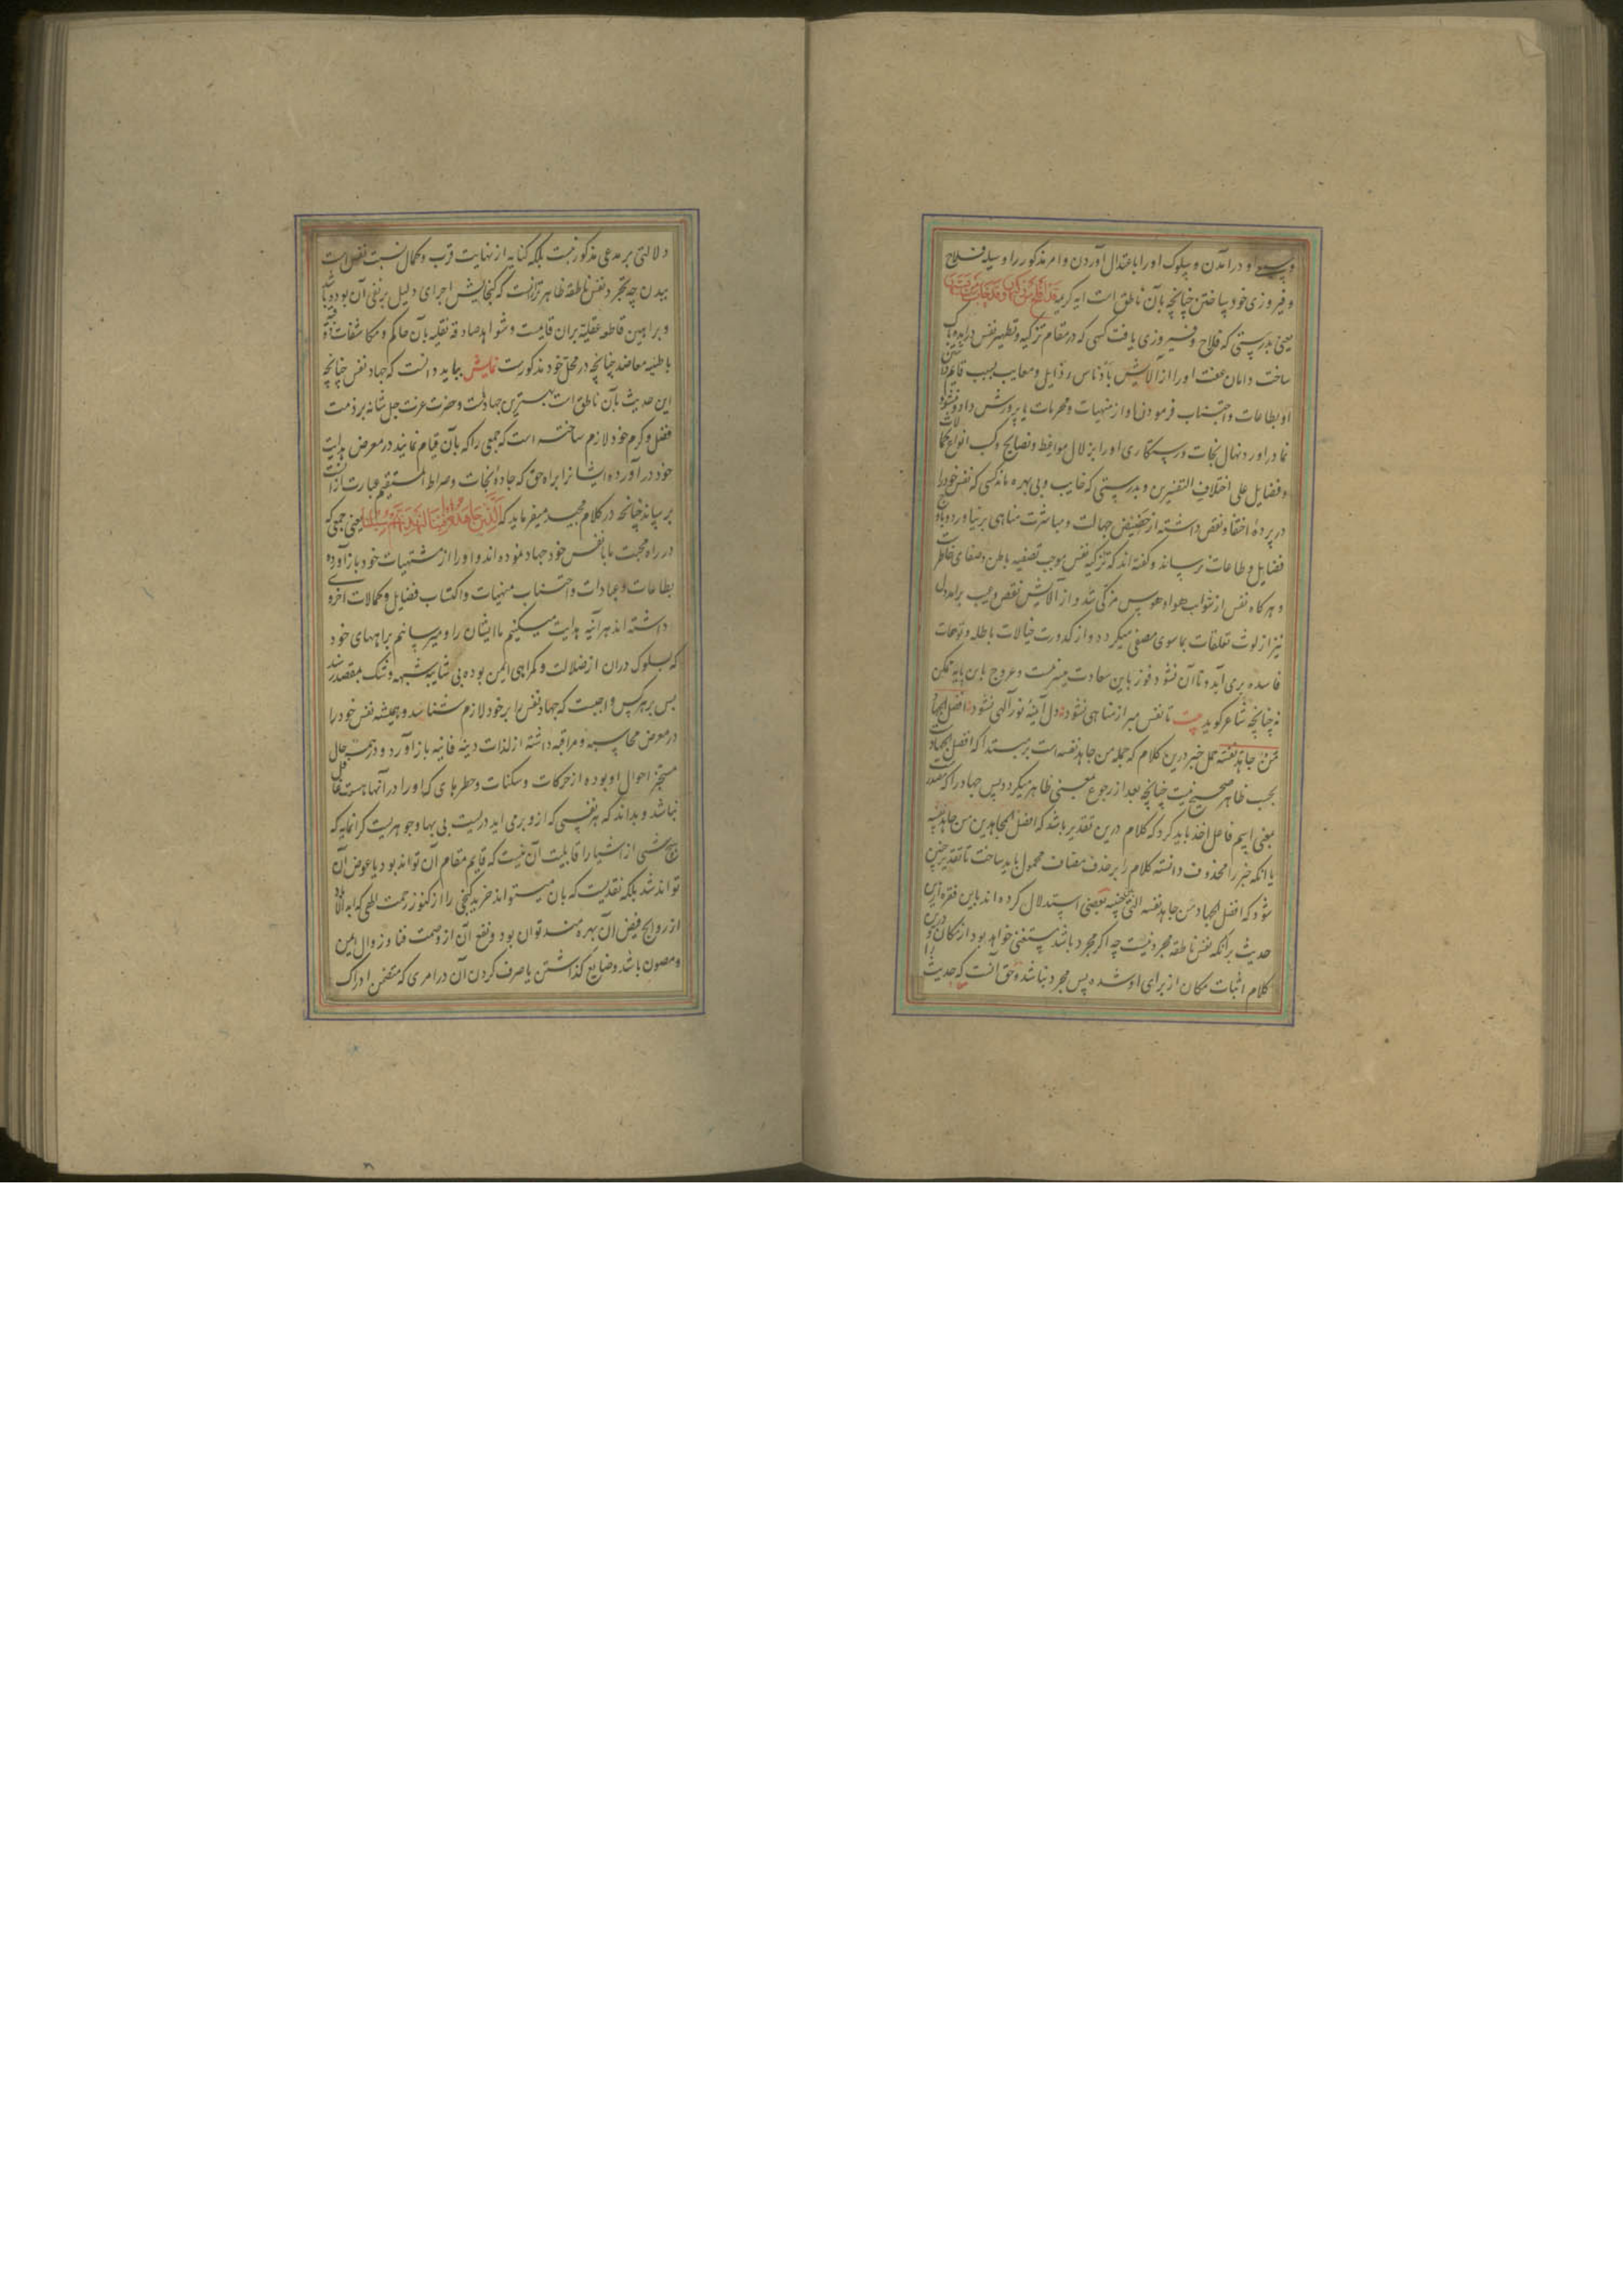 او درآمدن و سلوک او را باعتدال آوردن و امر مذکور را وسیله فلاح
و فیروزی خود ساختن چنانچه بآن ناطق است ایه کریمه قد افلح من زکیها و قد خاب من دسیها
یعنی بدرستی که فلاح و فیروزی یافت کسی که در مقام تزکیه و تطهیر نفس درامد و پاک
ساخت دامان عفت او را از آلایش بادناس رذایل و معایب بسبب قایم داشتن
او بطاعات و اجتناب فرمودن او از منهیات و محرمات یا پرورش داد و نشو و
نما دراورد نهال نجات و رستکاری او را بزلال مواعظ و نصایح و کسب انواع کمالات
و فضایل علی اختلاف التفسیرین و بدرستی که خایب و بی بهره ماند کسی که نفس خود را
در پرده اخفا و نقص داشته از حضیض جهالت و مباشرت مناهی برنیاورد و باوج
فضایل و طاعات نرساند و کفته اند که تزکیه نفس موجب تصفیه باطن و صفای خاطر است
و هر کاه نفس از شوایب هوا و هوس مزکی شد و از آلایش نقص و عیب برامد دل
نیز از لوث تعلقات بماسوی مصفی میکردد و از کدورت خیالات باطله و توهمات
فاسده بری آید و تا آن نشود فوز باین سعادت میسر نیست و عروج باین پایه ممکن
نه چنانچه شاعر کوید بیت تا نفس مبرا ز مناهی نشود دل آینه نور آلهی نشود افضل الجهاد
من جاهد نفسه حمل خبر درین کلام که جمله من جاهد نفسه است بر مبتدا که افضل الجهاد است
بحسب ظاهر صحیح نیست چنانچه بعد از رجوع بمعنی ظاهر میکردد پس جهاد را که مصدر است
بمعنی اسم فاعل اخذ باید کرد که کلام درین تقدیر باشد که افضل المجاهدین من جاهد نفسه
یا انکه خبر را محذوف دانسته کلام را بر حذف مضاف محمول باید ساخت تا تقدیر چنین
شود که افضل الجهاد من جاهد نفسه التی بین جنبیه بعضی استدلال کرده اند باین فقره ازین
حدیث برانکه نفس ناطقه مجرد نیست چه اکر مجرد باشد مستغنی خواهد بود از مکان و درین
کلام اثبات مکان از برای او شده پس مجرد نباشد و حق آنست که حدیث را
دلالتی بر مدعی مذکور نیست بلکه کنایه از نهایت قرب و کمال نسبت نفس است
ببدن چه تجرد نفس ناطقه ظاهر تر ازانست که کنجایش اجرای دلیل بر نفی آن بوده باشد
و براهین قاطعه عقلیه بران قایمست و شواهد صادقه نقلیه بآن حاکم و مکاشفات ذوقیه
باطنیه معاضد چنانچه در محل خود مذکورست نمایش بباید دانست که جهاد نفس چنانچه
این حدیث بآن ناطق است بهترین جهادهاست و حضرت عزت جل شانه بر ذمت
فضل و کرم خود لازم ساخته است که جمعی را که بآن قیام نمایند در معرض هدایت
خود درآورده ایشانرا براه حق که جاده نجات و صراط المستقیم عبارت ازانست
برساند چنانچه در کلام مجید میفرماید که الذین جاهدوا فینا لنهدینهم سبلنا یعنی جمعی که
در راه محبت ما با نفس خود جهاد نموده اند و او را از مشتهیات خود بازآورده
بطاعات و عبادات و اجتناب منهیات و اکتساب فضایل و کمالات اخروی
داشته اند هرآینه هدایت میکنیم ما ایشان را و میرسانیم براههای خود
که سلوک دران از ضلالت و کمراهی ایمن بوده بی شایبه شبهه و شک بمقصد رسند
پس بر هر کس واجبست که جهاد نفس را بر خود لازم شناسد و همیشه نفس خود را
در معرض محاسبه و مراقبه داشته از لذات دنیه فانیه بازآورد و در همه حال
متجر احوال او بوده از حرکات و سکنات و خطرهای که او را در آنها هست غافل
نباشد و بداند که هر نفسی که ازو برمی اید دریست بی بها و جوهریست کرانمایه که
هیچ شی از اشیا را قابلیت آن نیست که قایم مقام آن تواند بود یا عوض آن
تواند شد بلکه نقدیست که بان میتواند خرید کنجی را از کنوز رحمت الهی که ابد الاباد
از روایح فیض آن بهره مند توان بود و نفع آن از وصمت فنا و زوال ایمن
و مصون باشد و ضایع کذاشتن یا صرف کردن آن در امری که متضمن ادراک